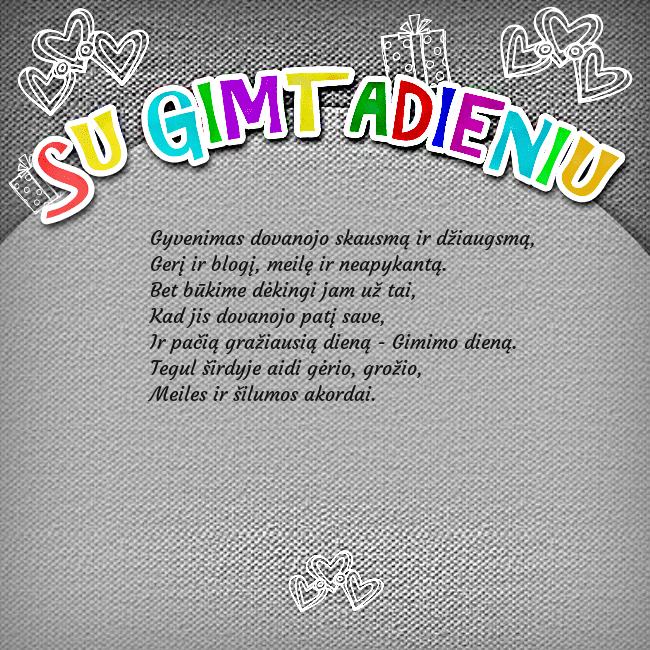 SU GIMTADIENIU
Gyvenimas dovanojo skausmą ir džiaugsmą,
Gerį ir blogį, meilę ir neapykantą.
Bet būkime dėkingi jam už tai,
Kad jis dovanojo patį save,
Ir pačią gražiausią dieną - Gimimo dieną.
Tegul širdyje aidi gėrio, grožio,
Meiles ir šilumos akordai.